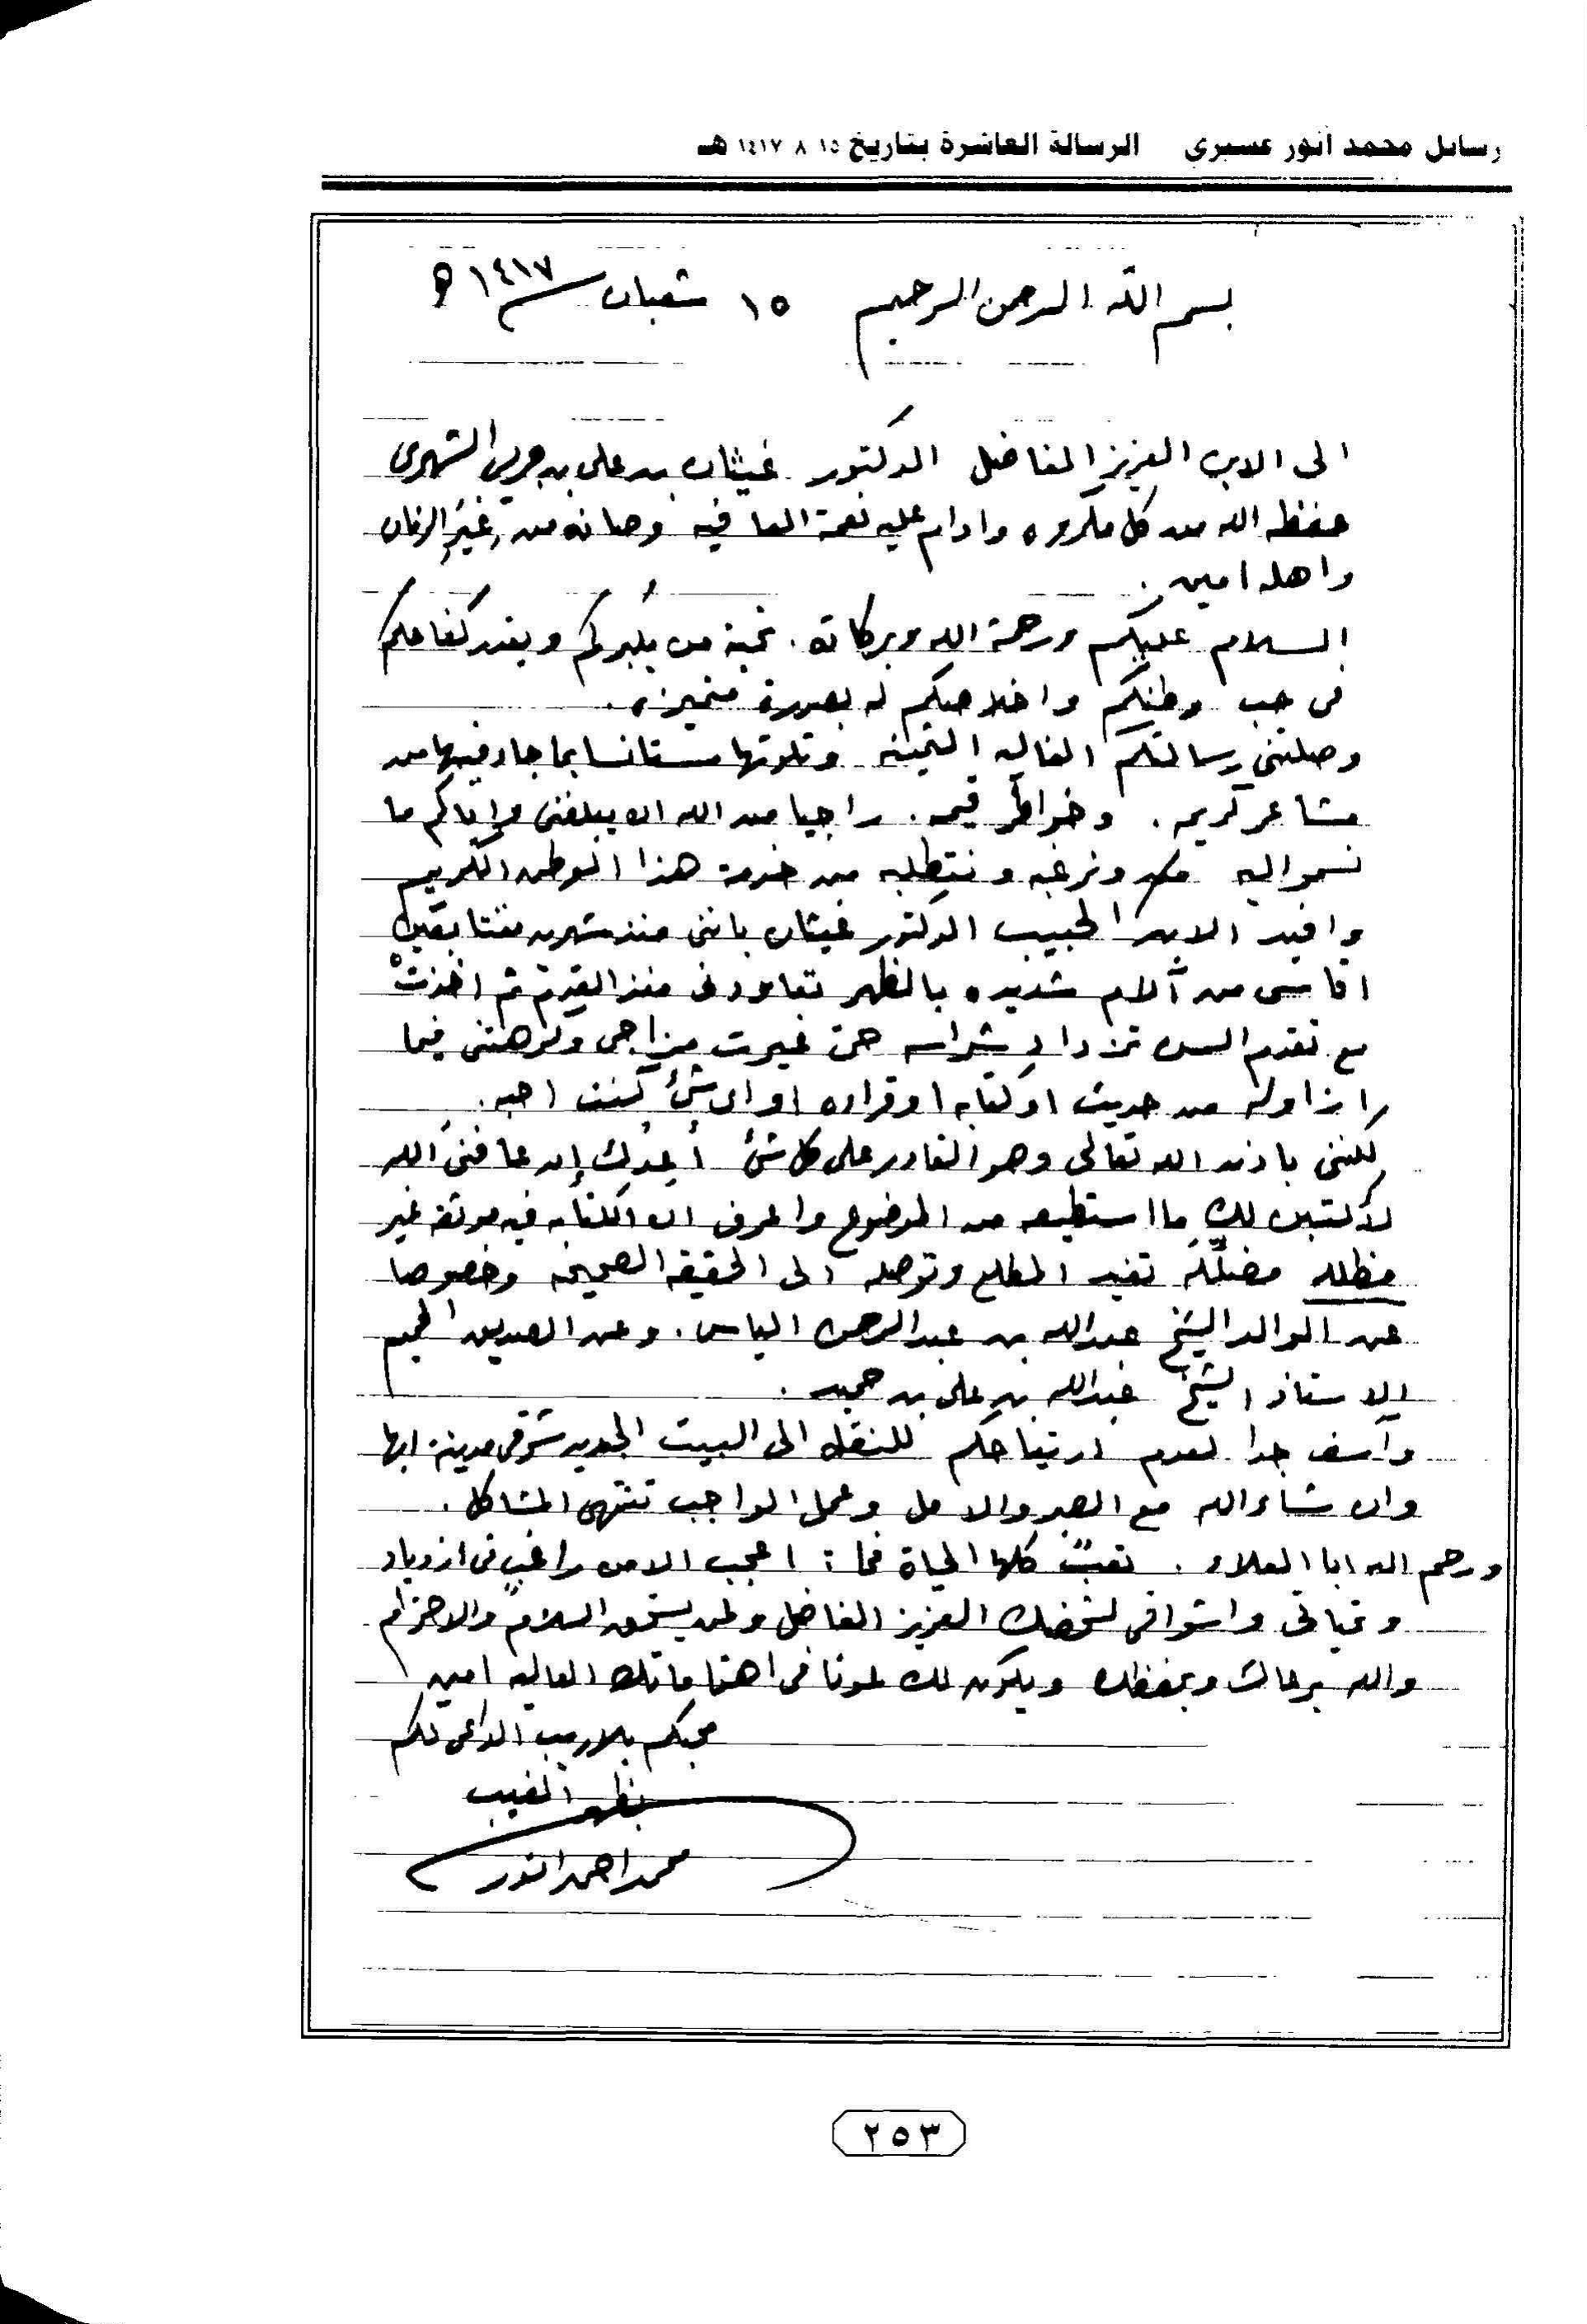 رسائل محمد أنور عسيري الرسالة العاشرة بتاريخ ١٥ ٨ ١٤١٧ هـ
بسم الله الرحمن الرحيم ١٥ شعبان ١٤١٧ ه
الى الابن العزيز الفاضل الدكتور غيثان بن علي بن جريس الشهري
حفظه الله من كل مكروه وادام عليه نعمة العافيه وصانه من غِيَرِ الزمان
واهله امين .
السلام عليكم ورحمة الله وبركاته . تحية من يُكبركم ويقدر كفاحكم
في حب وطنكم واخلاصكم له بصورة متميزه .
وصلتني رسالتكم الغاليه الثمينه وتلوتها مستانسا بما جاء فيها من
مشاعر كريمه . وخواطر قيمه . راجيا من الله ان يبلغني وإياكم ما
نسمو اليه ونرغبه ونتطلبه من خدمة هذا الوطن الكريم
وافيد الابن الحبيب الدكتور غيثان بانني منذ شهرين متتابعين
اقاسي من آلام شديده بالظهر تعاودني منذ القِدم ثم اخذتْ
مع تقدم السن تزداد شراسه حتى غيرت مزاجي وكرهتني فيما
ازاوله من حديث او كتابه او قراءه او اي شئ كنت احبه .
لكنني باذن الله تعالى وهو القادر على كل شئ أعِدُك إن عافنيَ الله
لأكتبن لك ما استطيعه من الموضوع واعرف ان الكتابه فيه موثقه غير
مظلله مضلِّله تفيد المطلع وتوصله الى الحقيقه الصحيحه وخصوصا
عن الوالد الشيخ عبدالله بن عبدالرحمن الياس . وعن الصديق الحميم
الاستاذ الشيخ عبدالله بن علي بن حميد .
وآسف جدا لعدم ارتياحكم للنقل الى البيت الجديد شرقي مدينة ابها
وان شاء الله مع الصبر والامل وعمل الواجب تنتهي المشاكل .
ورحم الله ابا العلاء . تعبٌ كلها الحياة فما : اعجب الا من راغبٍ في ازدياد
وتحياتي واشواقي لشخصك العزيز الفاضل ولمن يستحق السلام والاحترام
والله يرعاك ويحفظك ويكون لك عونا في اهتماماتك العاليه امين
محبكم بلا ريب الداعي لكم
بظهر الغيب
محمد احمد انور
٢٥٣